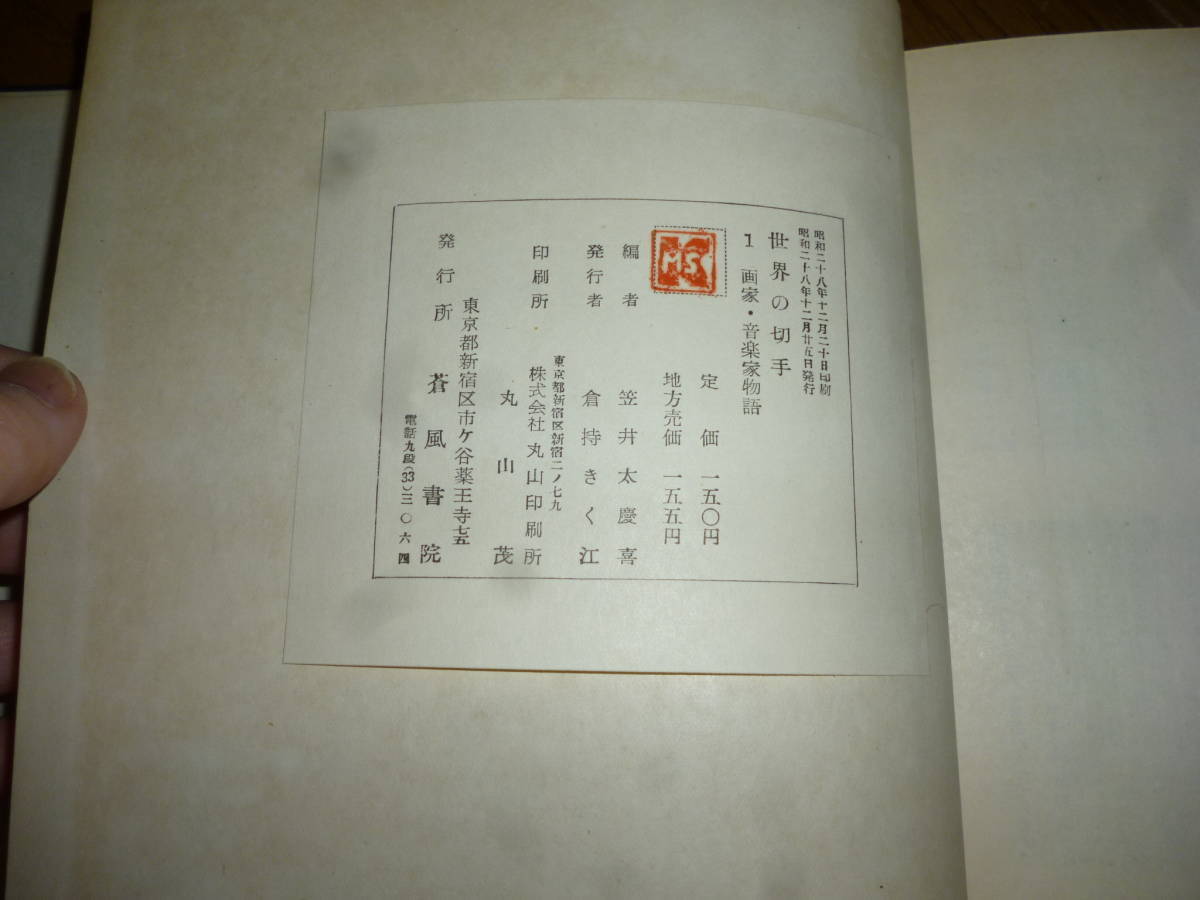 昭和二十八年十二月二十日印刷
昭和二十八年十二月廿五日発行
世界の切手
1 画家・音楽家物語
定価 一五〇円
地方売価 一五五円
MS
編者 笠井太慶喜
発行者 倉持きく江
東京都新宿区新宿二ノ七九
印刷所 株式会社 丸山印刷所
丸山茂
東京都新宿区市ケ谷薬王寺七五
発行所 蒼風書院
電話九段(33)三〇六四